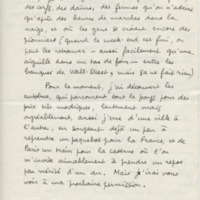 des cerfs, des daims, des fermes qu'on n'atteint
qu'après des heures de marches dans la
neige, et où les gens se croient encore des
pionniers (quand le week-end est fini, on
peut les retrouver - aussi facilement qu'une
aiguille dans un tas de foin - entre les
banques de Wall-Street, mais ça ne fait rien)
Pour le moment, j'ai découvert les
autobus, qui parcourent tout le pays pour des
prix très modiques, lentement mais
agréablement, aussi j'erre d'une ville à
l'autre, en songeant déjà un peu à
reprendre un paquebot pour la France, et de
Paris un train pour la caserne où l'on
m'invite aimablement à prendre un repos
par mérité d'un an. Mais je irai vous
voir à ma prochaine permission.